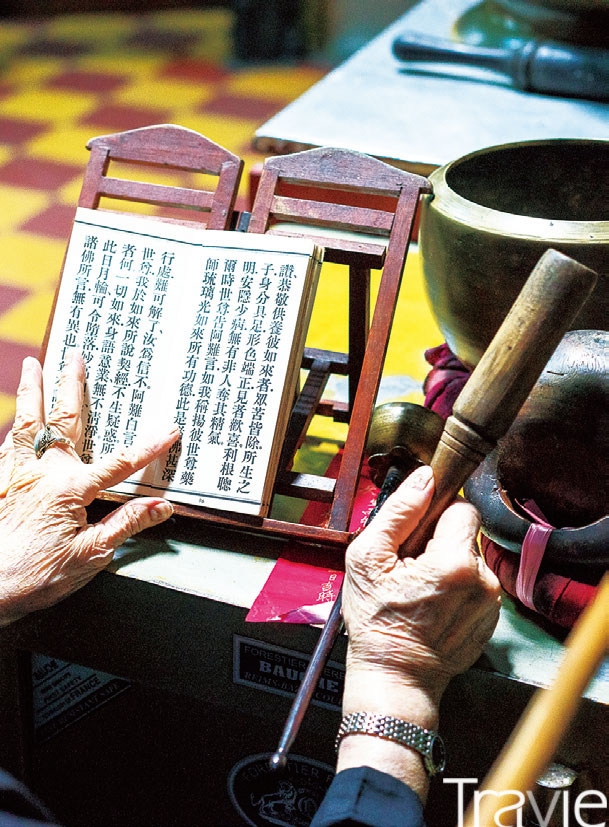 讚、恭敬供養彼如來者、眾苦皆除、所生之
子身分具足、形色端正、見者歡喜、利根聰
明、安隱少病、無有非人奪其精氣
爾時世尊告阿難言、如我稱揚彼世尊藥
師琉璃光如來所有功德、此是佛甚深
行處、難可解了、汝為信不、阿難白言
世尊、我於如來所說契經、不生疑惑、所
者何、一切如來身語意業、無不清淨、世尊
此日月輪、可令墮落、妙高
諸佛所言、無有異也、世
FORESTIER FRERE
BAUCHE
REIMS
FRANCE
Travie